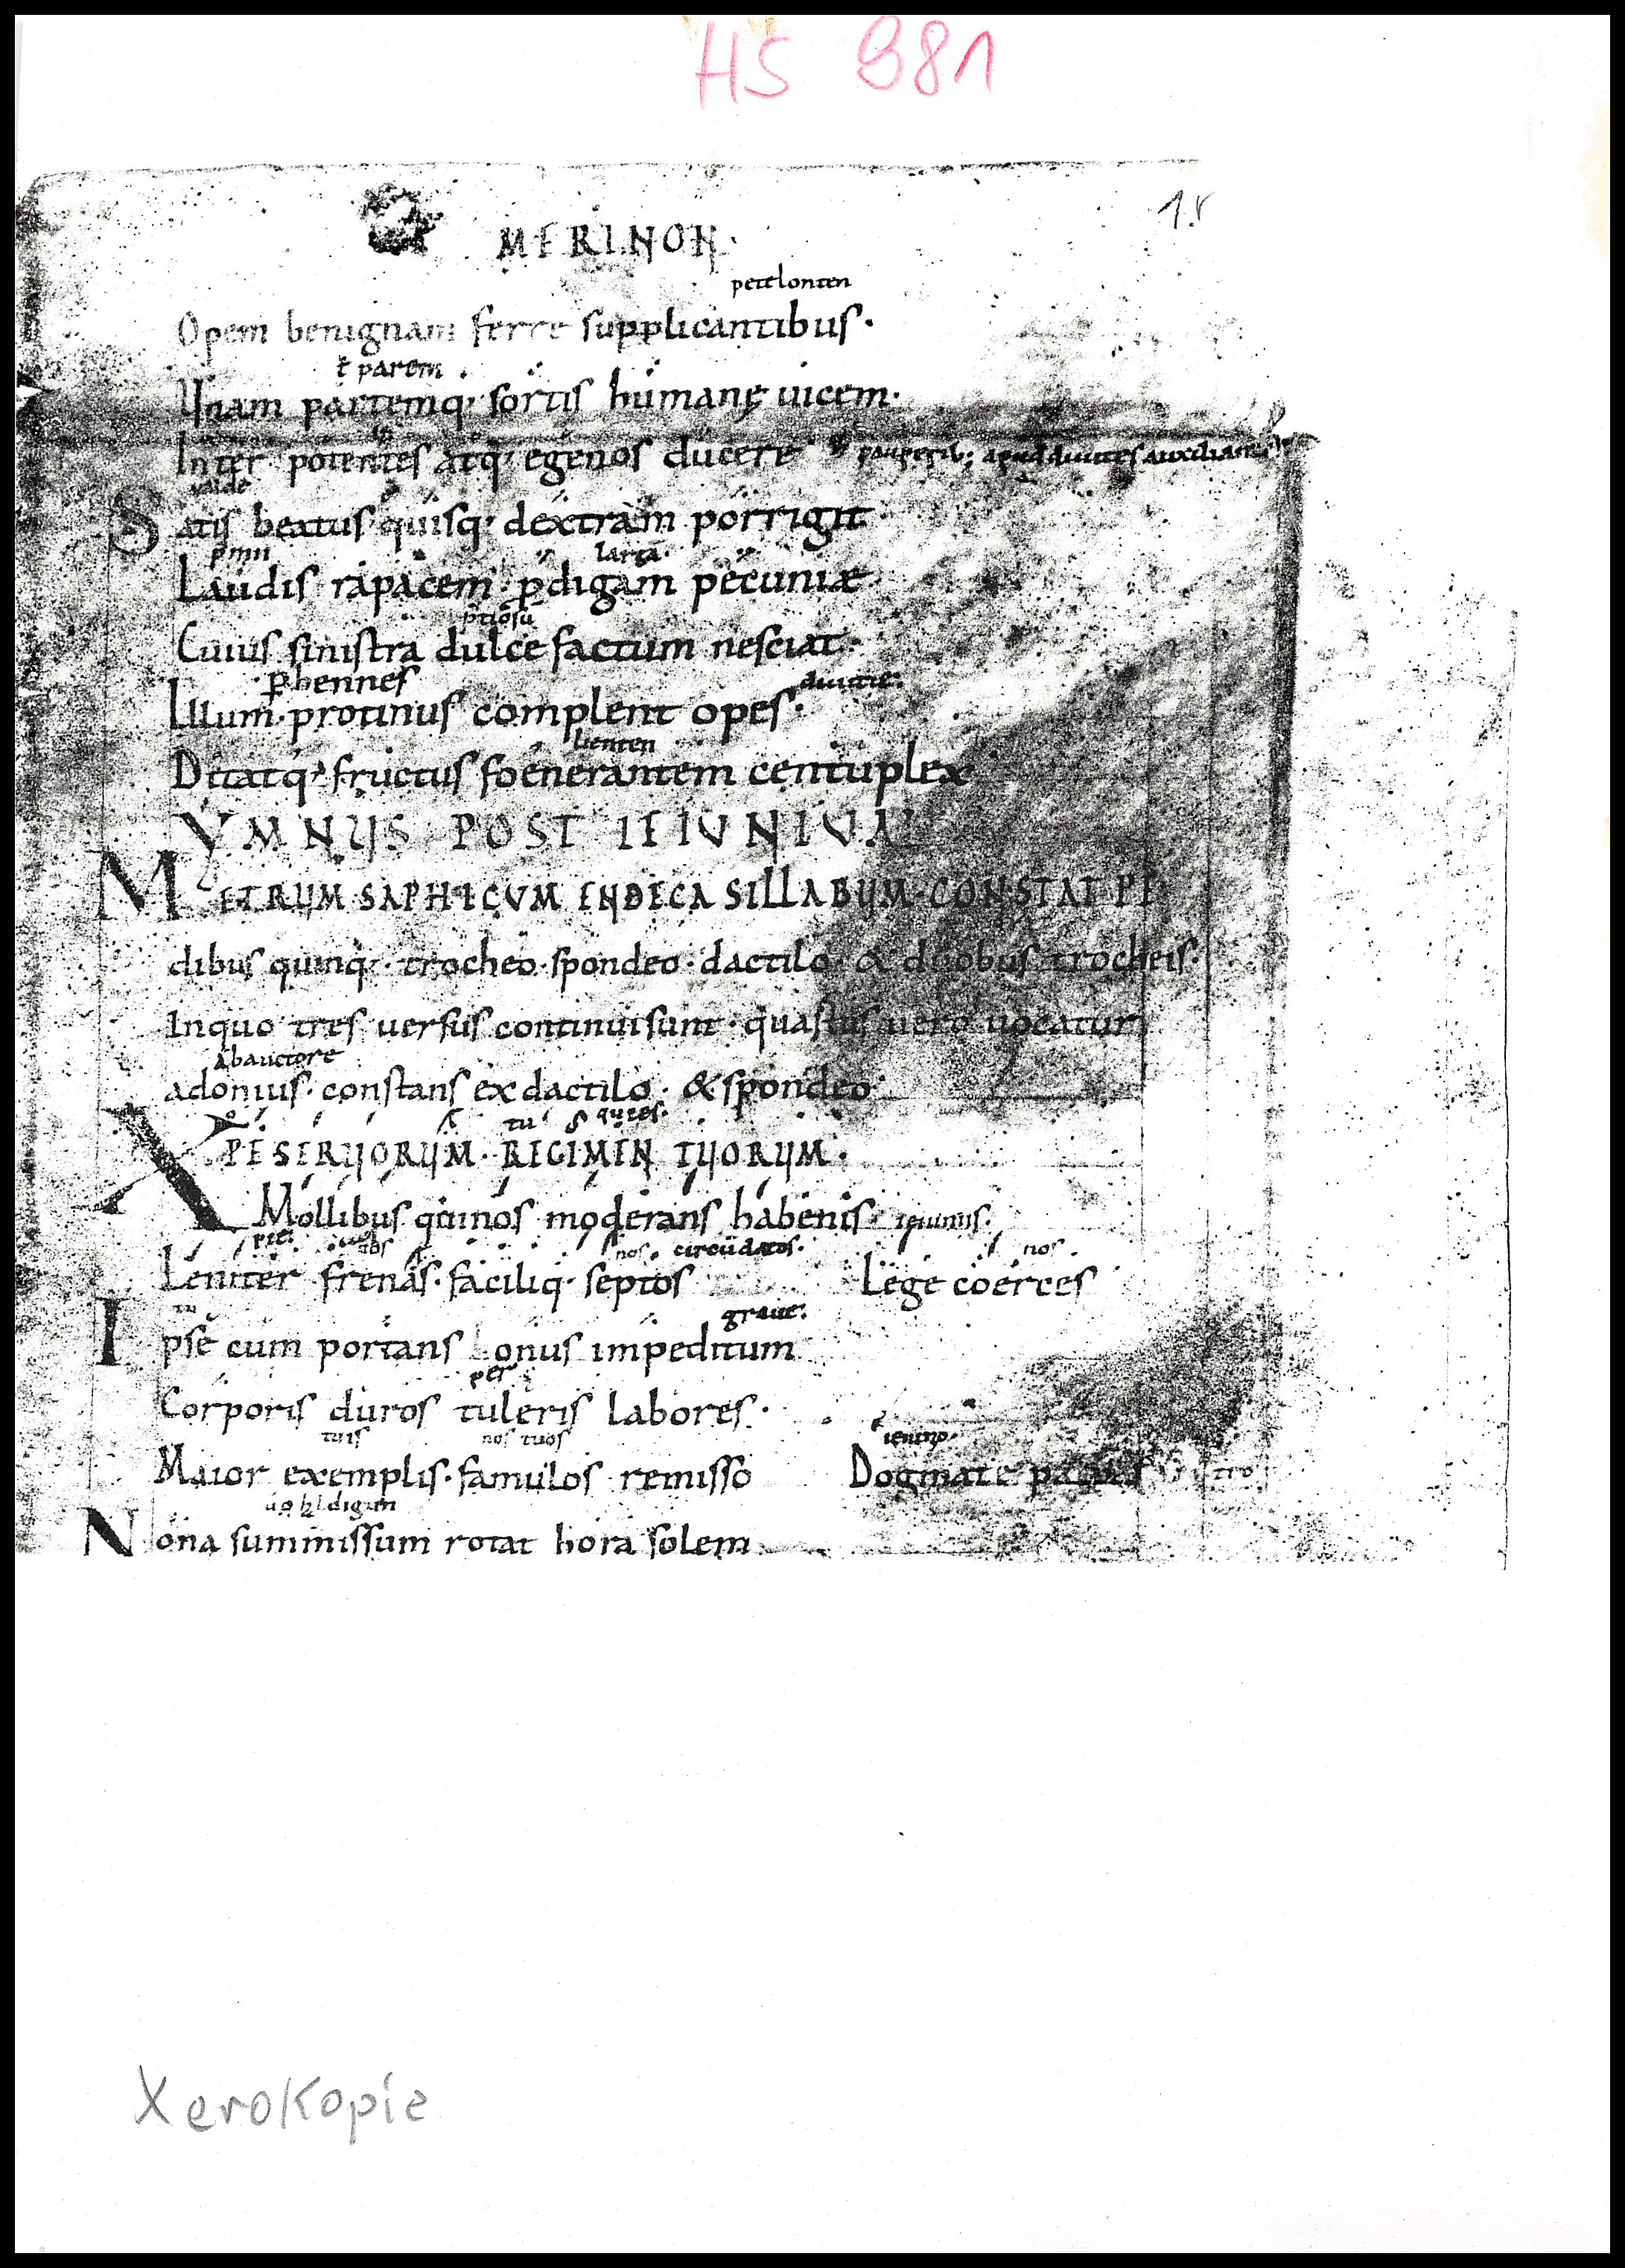 HS 981
1.r
MERINON·
petelonten
Opem benignam ferre supplicantibus·
ł parem
Unam partemq· sortis humanę uicem·
Inter potentes atq· egenos ducere pauperib; apud diuites auxiliant
valde
Satis beatus quisq· dextram porrigit
largā·
Laudis rapacem· ꝓdigam pecuniæ
p̄tiosū
Cuius sinistra dulce factum nesciat·
ꝑhennes diuitie:
Illum· protinus complent opes·
lienten
Ditatq· fructus foenerantem centuplex
YMNUS POST IEIUNIUM
METRUM SAPHICVM ENDECASILLABUM· CONSTAT PE
dibus quinq·· trocheo· spondeo· dactilo· & duobus trocheis·
Inquo tres uersus continui sunt· quartus uero uocatur
Abauctore
adonius· constans ex dactilo· & spondeo·
tu qui es·
XPE SERUORUM· REGIMEN TUORUM·
Mollibus quinos moderans habenis· ieiuniis·
pie: nos nos· circūdatos· nos·
Leniter frenas· faciliq· septos Lege coerces
tu graue:
Ipse cum portans onus impeditum
per
Corporis duros tuleris labores·
tuis nos tuos ieiunio·
Maior exemplis· famulos remisso Dogmate
Nona summissum rotat hora solem
Xerokopie